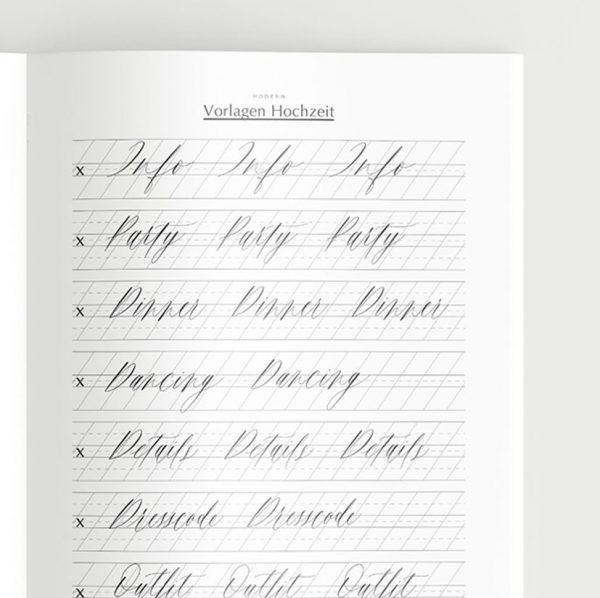 MODERN
Vorlagen Hochzeit
x Info Info Info
x Party Party Party
x Dinner Dinner Dinner
x Dancing Dancing
x Details Details Details
x Dresscode Dresscode
x Outfit Outfit Outfit